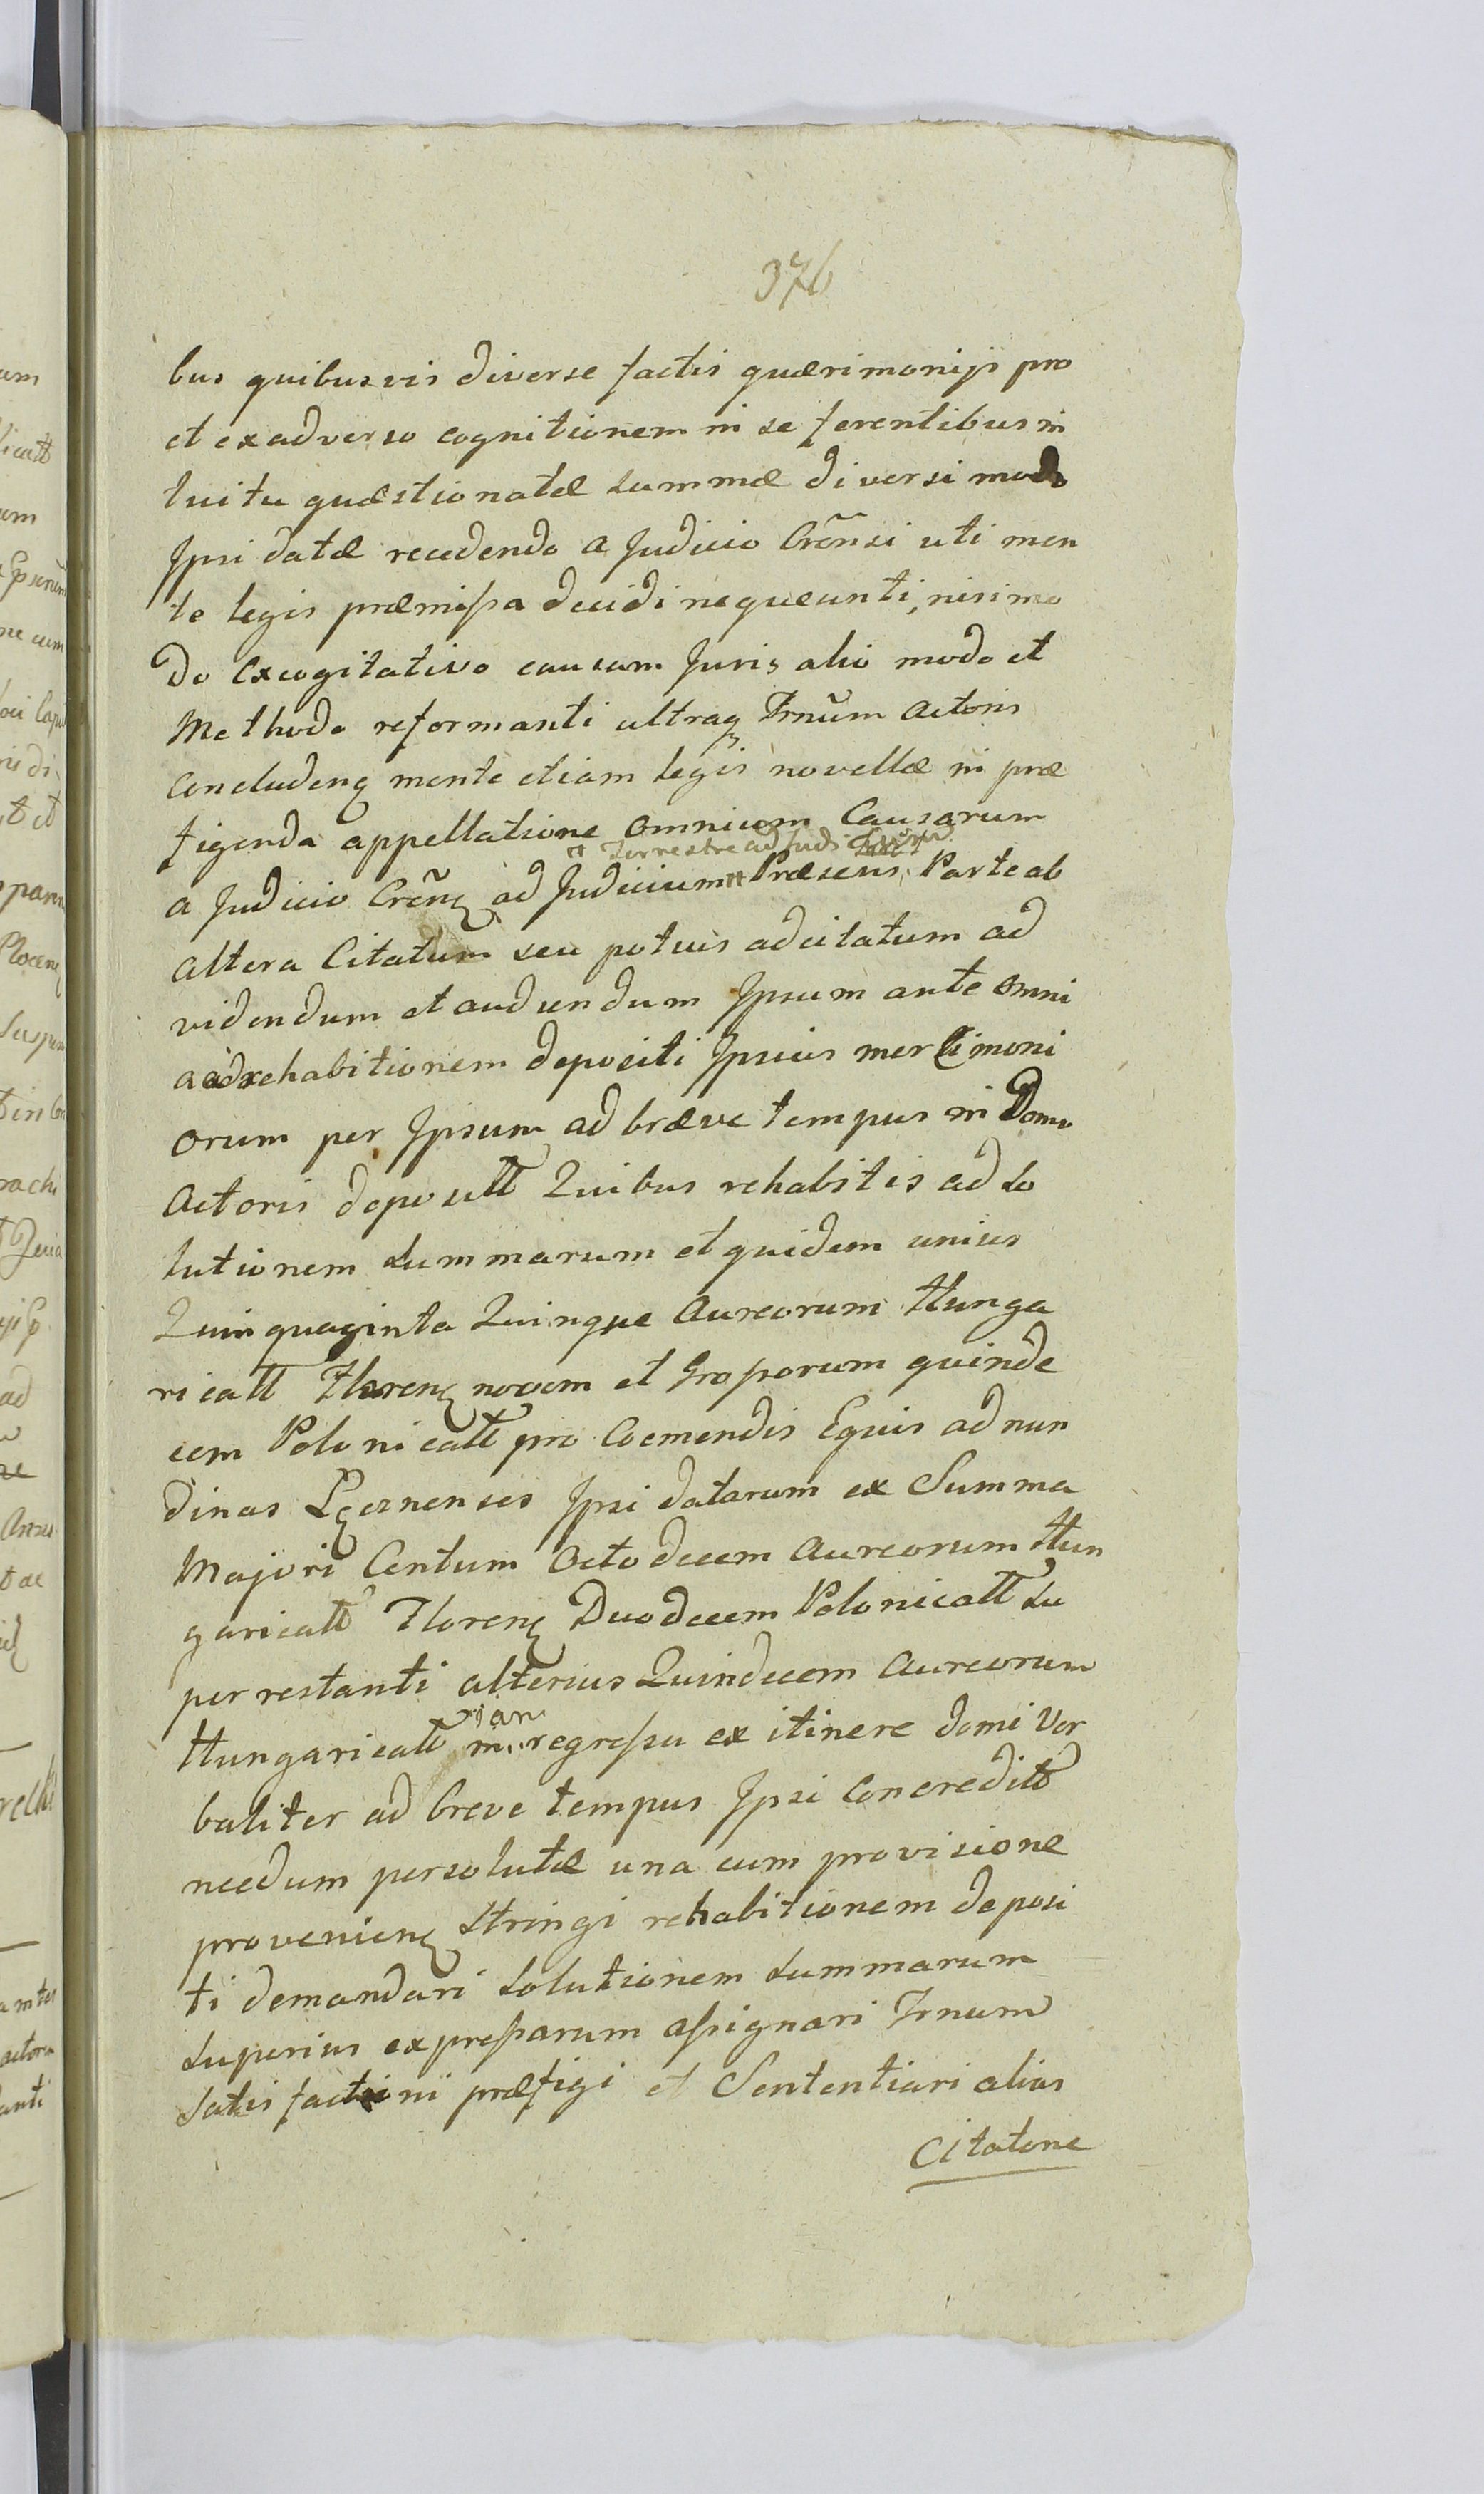 376
bus quibusvis diverse factis quærimonijs pro
et exadverso cognitionem in se ferentibus in
tuitu quæstionatæ summæ diversimodo
Ipsi datæ recedendo a Judicio Crẽnsi uti men
te legis præmissa decidi nequeunti, nisi mo
do excogitativo causam Juris alio modo et
Methodo reformanti ultraq Trnũm Actoris
concludenq mente etiam legis novellæ in præ
figenda appellatione omnium Causarum
# Terrestre ad Judi
a Judicio Creñq ad Judicium # Præsens, Parte ab
altera Citatum seu potuis adcitatum ad
videndum et audiendum Ipsum ante omni
a ad rehabitionem depositi Ipsius mercimoni
orum per Ipsum ad bræve tempus in Domo
Actoris deposiitt Quibus rehabitis ad so
lutionem summarum et quidem unius
Quinquaginta Quinque Aureorum Hunga
ricatt Florenq novem et Grossorum quinde
cem Polonicatt pro Coemendis Equis ad nun
dinas Lęcznenses Ipsi datarum ex Summa
Majori Centum Octodecem Aureorum Hun
garicatt Florenq Duodecem Polonicatt su
perrestanti alterius Quindecem Aureorum
ian
Hungaricatt in regressu ex itinere domi Ver
baliter ad breve tempus Ipsi Concreditt
necdum persolutæ una cum provisione
provenienq stringi rehabitionem deposi
ti demandari solutionem summarum
superius expressarum assignari Trnum
satisfactioni præfigi et Sententiari alias
Citatone